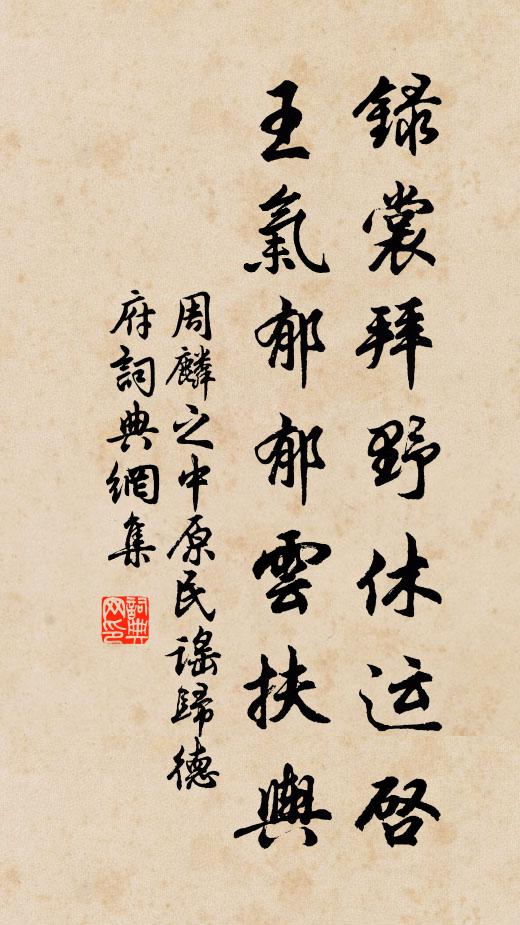 録裳拜野休运啓
王氣郁郁雲扶輿
周麟之中原民謡歸德
府詞典網集
詞典
网印